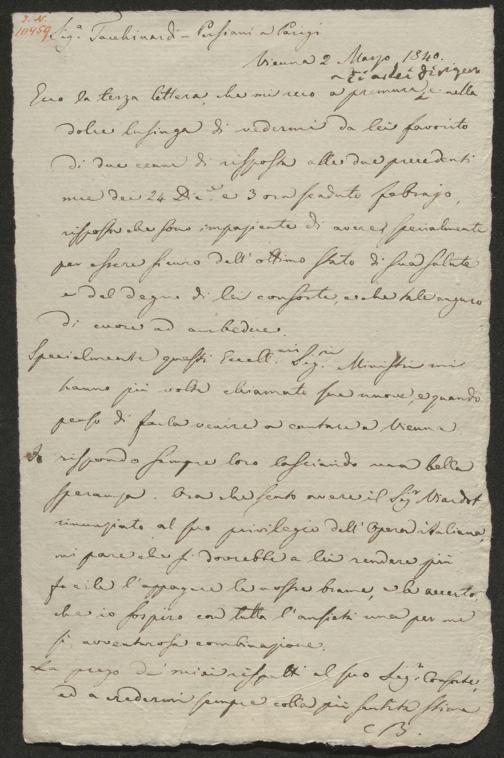 I. N. 10459
Sig.ª Tacchinardi-Persiani a Parigi
Vienna 2 Marzo 1840.
a lei dirigere
Ecco la terza lettera, che mi reco a premura e nella
dolce lusinga di vedermi da lei favorito
di due cenni di risposta alle due precedenti
mie dei 24 Dic.e e 3 ora scaduto febrajo,
risposta che sono impaziente di avere specialmente
per essere sicuro dell'ottimo stato di sua salute
e del degno di lei consorte, e che tale auguro
di cuore ad ambedue.
Specialmente questi Eccell.mi Sig.ri Ministri mi
hanno più volte chiamate sue nuove, e quando
penso di farla venire a cantare a Vienna
Io rispondo sempre loro lasciando una bella
speranza. Ora che sento avere il Sig.r Viardot
rinunziato al suo privilegio dell'Opera italiana,
mi pare che si dovrebbe a lei rendere più
facile l'appagare le nostre brame, e la accerto,
che io sospiro con tutta l'ansietà una per me
sì avventurosa combinazione.
La prego de' miei rispetti al suo Sig.r Consorte,
ed a credermi sempre colla più sentita stima
C B.